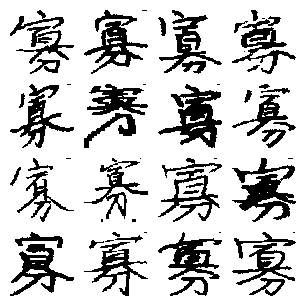 寡寡寡寡
寡寡寡寡
寡寡寡寡
寡寡寡寡